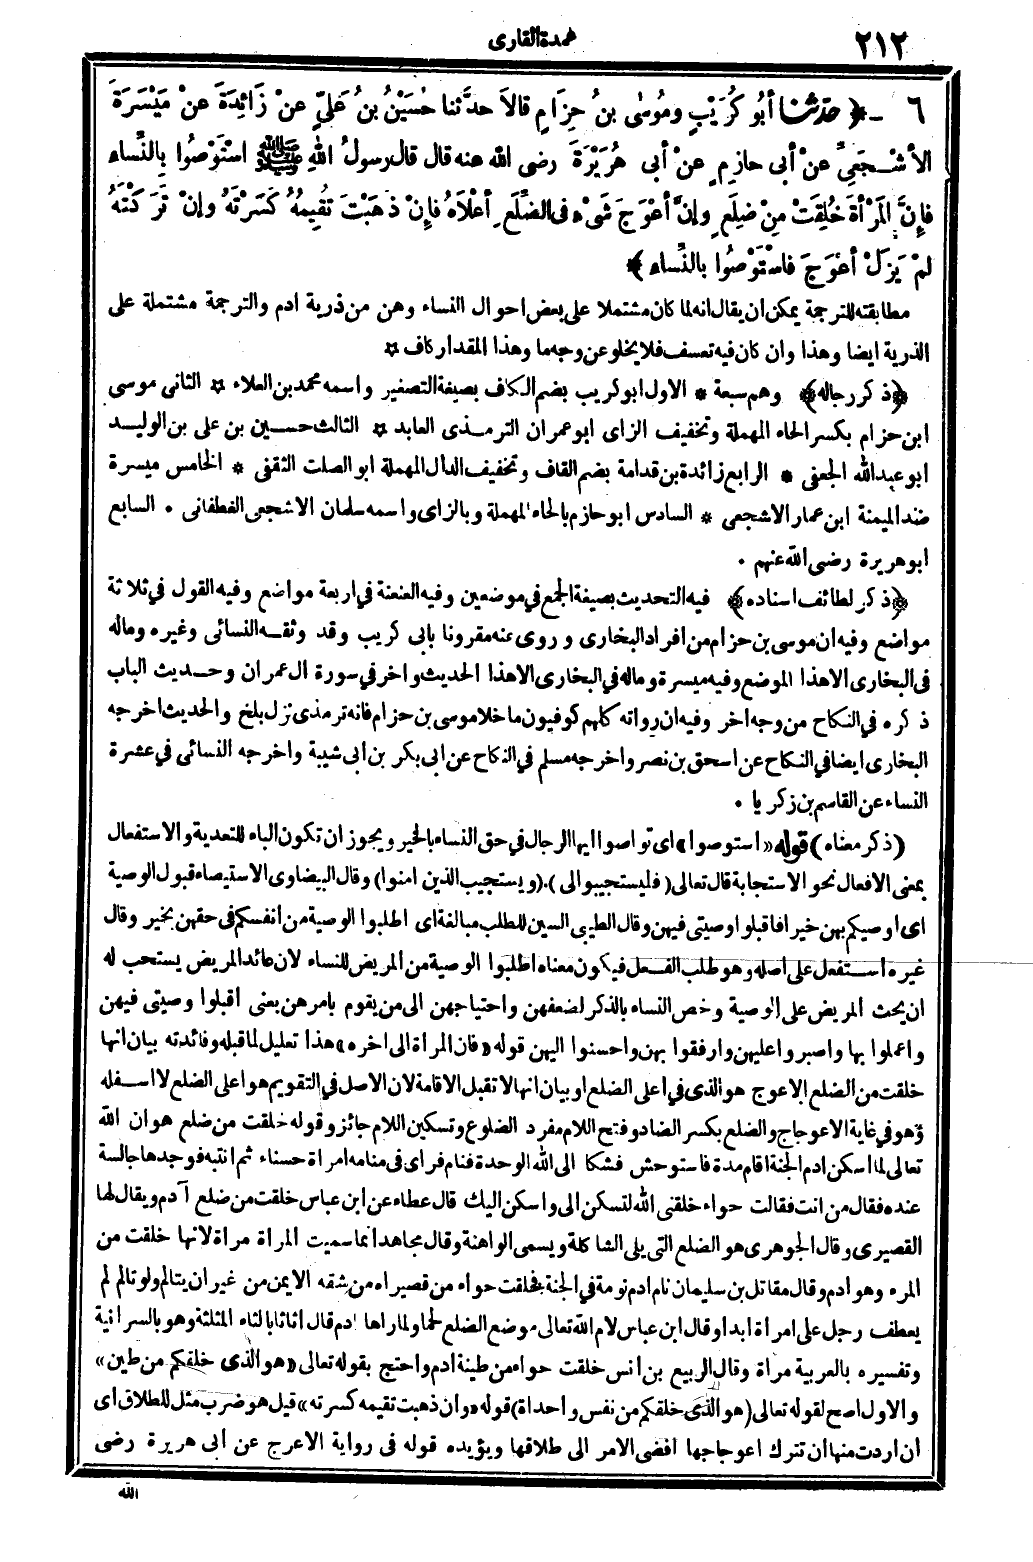 ٢١٢
عمدة القارى
٦ - ﴿ حَدَّثَنَا أبُو كُرَيْبٍ ومُوسَى بنُ حِزَامٍ قالاَ حدَّثنا حُسَيْنُ بنُ عَلِيٍّ عنْ زَائِدَةَ عنْ مَيْسَرَةَ
الأشْجَعِيِّ عنْ أبى حازِمٍ عنْ أبى هُرَيْرَةَ رضى الله عنه قال قال رسولُ اللهِ ﷺ اسْتَوْصُوا بِالنِّساءِ
فإنَّ المَرْأةَ خُلِقَتْ مِنْ ضِلَعٍ وإنَّ أعْوَجَ شَىْءٍ فى الضِّلَعِ أعْلاَهُ فإنْ ذهَبْتَ تُقِيمُهُ كَسَرْتَهُ وإنْ تَرَكْتَهُ
لمْ يَزَلْ أعْوَجَ فاسْتَوْصُوا بالنِّساءِ ﴾
مطابقته للترجمة يمكن ان يقال انه لما كان مشتملا على بعض احوال النساء وهن من ذرية ادم والترجمة مشتملة على
الذرية ايضا وهذا وان كان فيه تعسف فلا يخلو عن وجه ما وهذا المقدار كاف *
﴿ذكر رجاله﴾ وهم سبعة * الاول ابو كريب بضم الكاف بصيغة التصغير واسمه محمد بن العلاء * الثانى موسى
ابن حزام بكسر الحاء المهملة وتخفيف الزاى ابو عمران الترمذى العابد * الثالث حسين بن على بن الوليد
ابو عبد الله الجعفى * الرابع زائدة بن قدامة بضم القاف وتخفيف الدال المهملة ابو الصلت الثقفى * الخامس ميسرة
ضد الميمنة ابن عمار الاشجعى * السادس ابو حازم بالحاء المهملة وبالزاى واسمه سلمان الاشجعى الغطفانى * السابع
ابو هريرة رضى الله عنهم *
﴿ذكر لطائف اسناده﴾ فيه التحديث بصيغة الجمع فى موضعين وفيه العنعنة فى اربعة مواضع وفيه القول فى ثلاثة
مواضع وفيه ان موسى بن حزام من افراد البخارى وروى عنه مقرونا بابى كريب وقد وثقه النسائى وغيره وماله
فى البخارى الا هذا الموضع وفيه ميسرة وماله فى البخارى الا هذا الحديث واخر فى سورة ال عمران وحديث الباب
ذكره فى النكاح من وجه اخر وفيه ان رواته كلهم كوفيون ما خلا موسى بن حزام فانه ترمذى نزل بلخ والحديث اخرجه
البخارى ايضا فى النكاح عن اسحق بن نصر واخرجه مسلم فى النكاح عن ابى بكر بن ابى شيبة واخرجه النسائى فى عشرة
النساء عن القاسم بن زكريا *
(ذكر معناه) قوله «استوصوا» اى تواصوا ايها الرجال فى حق النساء بالخير ويجوز ان تكون الباء للتعدية والاستفعال
بمعنى الافعال نحو الاستجابة قال تعالى (فليستجيبوا لى)، (ويستجيب الذين امنوا) وقال البيضاوى الاستيصاء قبول الوصية
اى اوصيكم بهن خيرا فاقبلوا وصيتى فيهن وقال الطيبى السين للطلب مبالغة اى اطلبوا الوصية من انفسكم فى حقهن بخير وقال
غيره استفعل على اصله وهو طلب الفعل فيكون معناه اطلبوا الوصية من المريض للنساء لان عائد المريض يستحب له
ان يحث المريض على الوصية وخص النساء بالذكر لضعفهن واحتياجهن الى من يقوم بامرهن يعنى اقبلوا وصيتى فيهن
واعملوا بها واصبروا عليهن وارفقوا بهن واحسنوا اليهن قوله «فان المراة الى اخره» هذا تعليل لما قبله وفائدته بيان انها
خلقت من الضلع الاعوج هو الذى فى اعلى الضلع او بيان انها لا تقبل الاقامة لان الاصل فى التقويم هو اعلى الضلع لا اسفله
وهو فى غاية الاعوجاج والضلع بكسر الضاد وفتح اللام مفرد الضلوع وتسكين اللام جائز وقوله خلقت من ضلع هو ان الله
تعالى لما اسكن ادم الجنة اقام مدة فاستوحش فشكا الى الله الوحدة فنام فراى فى منامه امراة حسناء ثم انتبه فوجدها جالسة
عنده فقال من انت فقالت حواء خلقنى الله لتسكن الى واسكن اليك قال عطاء عن ابن عباس خلقت من ضلع آدم ويقال لها
القصيرى وقال الجوهرى هو الضلع التى يلى الشاكلة ويسمى الواهنة وقال مجاهد انما سميت المراة مراة لانها خلقت من
المرء وهو ادم وقال مقاتل بن سليمان نام ادم نومة فى الجنة فخلقت حواء من قصيراه من شقه الايمن من غير ان يتالم ولو تالم لم
يعطف رجل على امراة ابدا وقال ابن عباس لام الله تعالى موضع الضلع لحما ولما راها ادم قال اثاثا بالثاء المثلثة وهو بالسريانية
وتفسيره بالعربية مراة وقال الربيع بن انس خلقت حواء من طينة ادم واحتج بقوله تعالى «هو الذى خلقكم من طين»
والاول اصح لقوله تعالى (هو الذى خلقكم من نفس واحداة) قوله «وان ذهبت تقيمه كسرته» قيل هو ضرب مثل للطلاق اى
ان اردت منها ان تترك اعوجاجها افضى الامر الى طلاقها ويؤيده قوله فى رواية الاعرج عن ابى هريرة رضى
الله